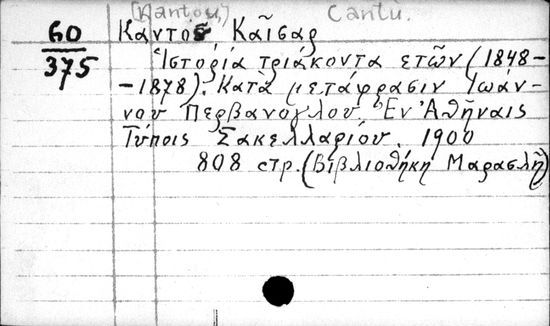 [Kantous] Cantù.
60 Καντος Καῖσαρ
375 Ἱστορία τριάκοντα ἐτῶν (1848-
-1878). Κατὰ μετάφρασιν Ἰωάν-
νου Περβανογλου. Ἐν Ἀθήναις
Τύποις Σακελλαρίου. 1900
808 стр. (Βιβλιοθήκη Μαρασλῆ)